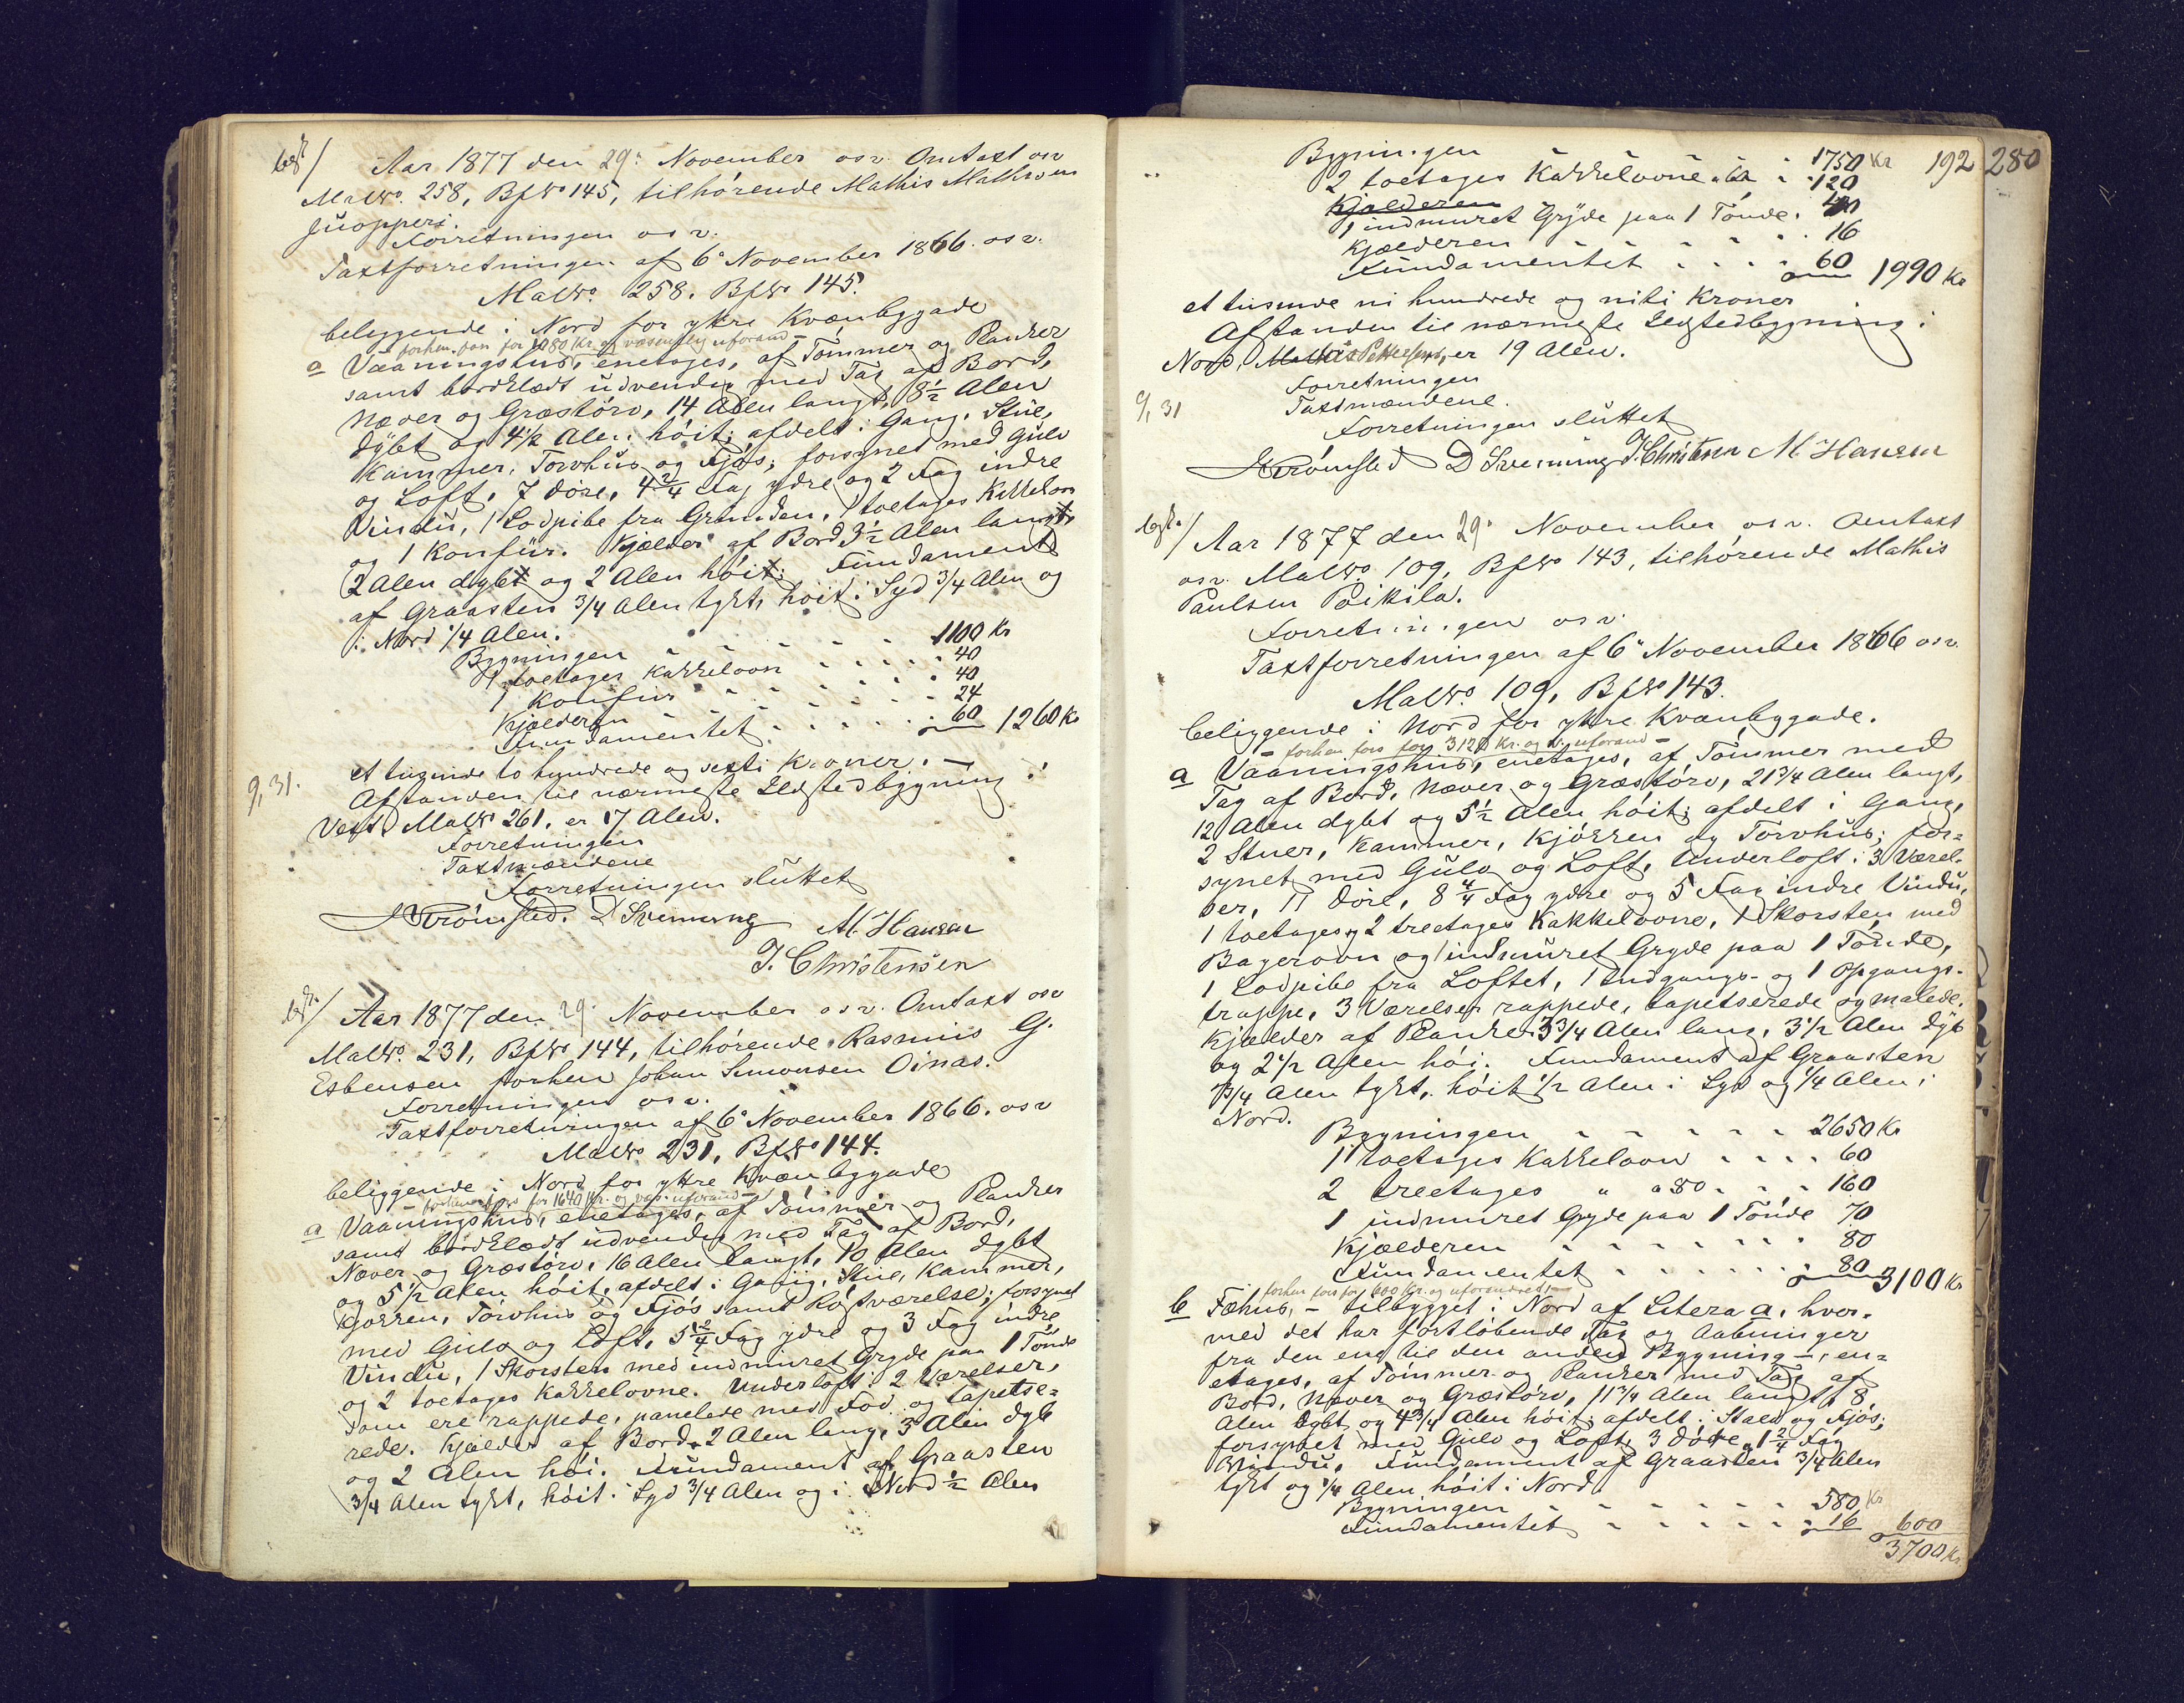 Aar 1877 den 29. November osv. Omtaxt over
MatNo. 258, BpNo 145, tilhørende Mathis Mathisen
Juopperi.
Forretningen osv.
Taxtforretningen af 6. November 1866. osv.
MatNo. 258. BpNo 145.
beliggende i Nord for ytre Kvænbygade
forhen fors for 1080 Kr. og væsentlig uforand-
a Vaaningshus, enetages, af Tömmer og Planker
samt bordklædt udvendig med Tag af Bord,
Næver og Græstörv, 14 Alen langt, 8 1/2 Alen
dybt og 4 1/2 Alen höit; afdelt i Gang, Stue,
Kammer, Torvhus og Fjös; forsynet med Gulv
og Loft, 7 Döre, 4 2/4 Fag ydre og 2 Fag indre
Vindu, 1 Lodpibe fra Grunden, 1 toetages Kakkelovn
og 1 Konfur. Kjælder af Bord 3 1/2 Alen langt,
2 Alen dybt og 2 Alen höit; Fundament
af Graasten 3/4 Alen tykt, höit i Syd 3/4 Alen og
i Nord 1/4 Alen.
Bygningen - - - - - 1100 Kr
1 toetages Kakkelovn - - - - 40
1 Konfur - - - - - 40
Kjælderen - - - - - 24
Fundamentet - - - - - 60 1260 Kr
et tusinde to hundrede og sexti Kroner. -
Afstanden til nærmeste Ildstedbygning i
Vest, MatNo 261, er 17 Alen.
9, 31.
Forretningen
Taxtmændene
Forretningen sluttet
D Svenning M. Hansen
J. Christensen
Aar 1877 den 29. November osv. Omtaxt osv
MatNo. 231, BpNo 144, tilhørende Rasmus G.
Esbensen forhen Johan Simonsen Oinas.
Forretningen osv.
Taxtforretningen af 6. November 1866. osv
MatNo 231, BpNo 144.
beliggende i Nord for ytre Kvænbygade
- forhen fors for 1640 Kr. og væs. uforand -
a Vaaningshus, enetages, af Tömmer og Planker
samt bordklædt udvendig med Tag af Bord,
Næver og Græstörv, 16 Alen langt, 10 Alen dybt
og 5 1/2 Alen höit, afdelt i Gang, Stue, Kammer,
Kjökken, Torvhus og Fjös samt Röstværelse; forsynet
med Gulv og Loft, 5 2/4 Fag ydre og 3 Fag indre
Vindu, 1 Skorsten med indmuret Gryde paa 1 Tönde
og 2 toetages Kakkelovne. Underloft i 2 Værelser,
som ere rappede, panelede med Fod og tapetse-
rede. Kjælder af Bord 2 Alen lang, 3 Alen dyb
og 2 Alen höi. Fundament af Graasten
3/4 Alen tykt, höit i Syd 3/4 Alen og i Nord 1/2 Alen
192 280
Bygningen - - - 1750 Kr
2 toetages Kakkelovne a 60 - 120
Kjælderen
1 indmuret Gryde paa 1 Tönde. 40
Kjælderen - - - - - 16
Fundamentet - - - - 60 1990 Kr
et tusinde ni hundrede og niti Kroner
Afstanden til nærmeste Ildstedbygning i
Nord, Pettersens, er 19 Alen.
Forretningen
9, 31
Taxtmændene.
Forretningen sluttet
D Svenning J. Christensen M Hansen
Aar 1877 den 29. November osv. Omtaxt
osv. MatNo. 109, BpNo 143, tilhørende Mathis
Paulsen Poikila.
Forretningen osv.
Taxtforretningen af 6. November 1866 osv.
MatNo. 109, BpNo 143.
beliggende i Nord for ytre Kvænbygade.
- forhen fors for 3120 Kr. og v. uforand -
a Vaaningshus, enetages, af Tömmer med
Tag af Bord, Næver og Græstörv, 21 3/4 Alen langt,
12 Alen dybt og 5 1/2 Alen höit; afdelt i Gang,
2 Stuer, Kammer, Kjökken og Torvhus; for-
synet med Gulv og Loft, Underloft i 3 Værel-
ser, 11 Döre, 8 4/4 Fag ydre og 5 Fag indre Vindu,
1 toetages og 2 treetages Kakkelovne, 1 Skorsten med
Bagerovn og indmuret Gryde paa 1 Tönde,
1 Lodpibe fra Loftet, 1 Indgangs- og 1 Opgangs-
trappe, 3 Værelser rappede, tapetserede og malede.
Kjælder af Planker 3 3/4 Alen lang, 3 1/2 Alen dyb
og 2 1/2 Alen höi. Fundament af Graasten
3/4 Alen tykt, höit 1/2 Alen i Syd og 1/4 Alen i
Nord.
Bygningen - - - - - 2650 Kr
1 toetages Kakkelovn - - - - 60
2 treetages " a 80 - - - 160
1 indmuret Gryde paa 1 Tönde 70
Kjælderen - - - - - - 80
Fundamentet - - - - - - 80 3100 Kr
forhen fors for 600 Kr. og uforandret
b Fæhus, - tilbygget i Nord af Litera a, hvor-
med det har fortlöbende Tag og Aabninger
fra den ene til den anden Bygning -, en-
etages, af Tömmer og Planker med Tag af
Bord, Næver og Græstörv, 11 3/4 Alen langt, 8
Alen dybt og 4 3/4 Alen höit; afdelt i Stald og Fjös;
forsynet med Gulv og Loft, 3 Döre, 1 2/4 Fag
Vindu, Fundament af Graasten 3/4 Alen
tykt og 1/4 Alen höit i Nord.
Bygningen - - - - - 580 Kr
Fundamentet - - - - - 16 600
3700 Kr